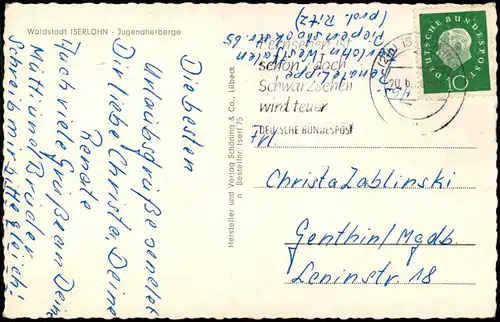 Waldstadt ISERLOHN - Jugendherberge
Die besten
Urlaubsgrüße sendet
Dir liebe Christa, Deine
Renate
Auch viele Grüße an Deine
Mutti und Brüder.
Schreib mir bitte gleich!
Hersteller und Verlag Schöning & Co., Lübeck
n Bestellnr. Iserl 75
Renate Lippe
Iserlohn/Westfalen
Piepenstockstr. 65
(prof. Ritz)
Fernsehen ist
schön, doch
Schwarzsehen
wird teuer
DEUTSCHE BUNDESPOST
DEUTSCHE BUNDESPOST
10
Frl.
Christa Zablinski
Genthin/Mgdb.
Leninstr. 18